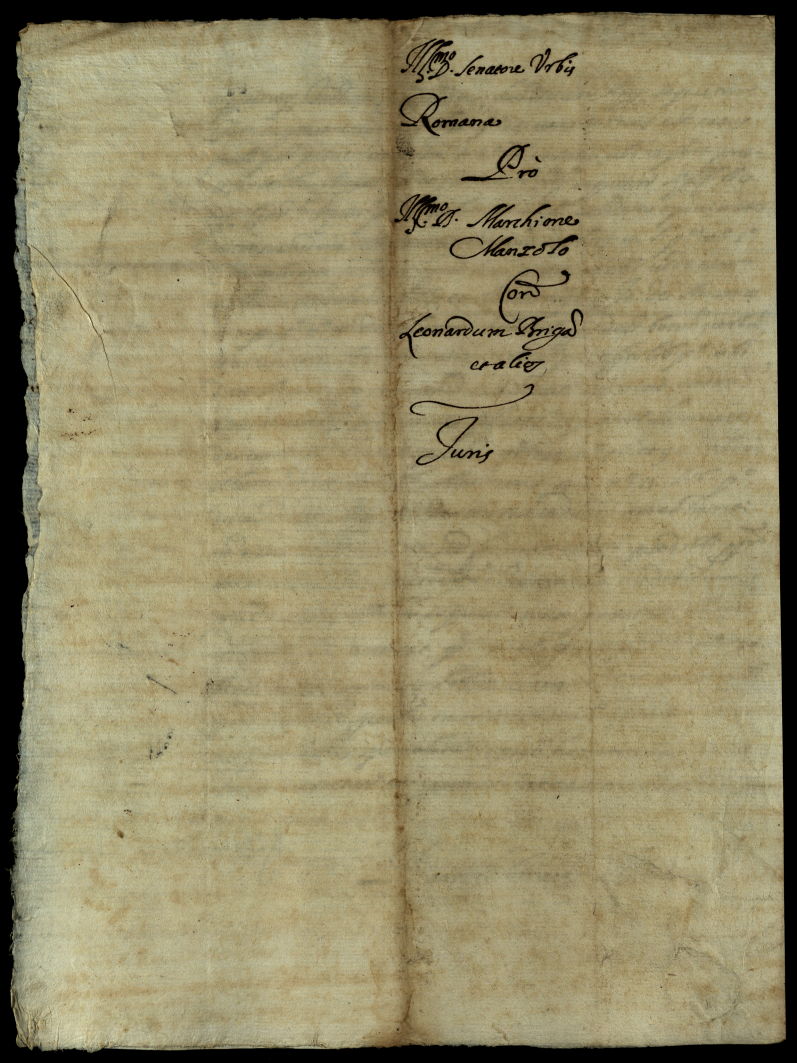 Ill.mo D. Senatore Urbis
Romana
Prò
Ill.mo D. Marchione
Manzolo
Con
Leonardum Brigad
et alios
Juris